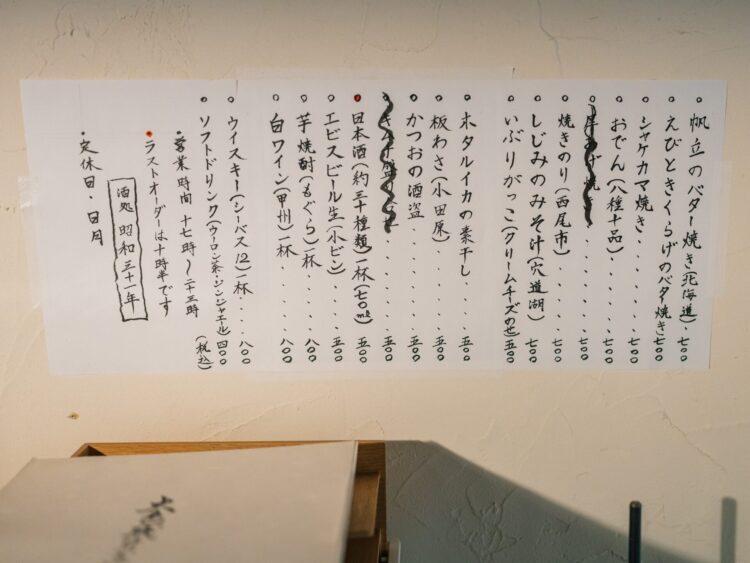 帆立のバター焼き(北海道)・七〇〇
えびときくらげのバタ焼き七〇〇
シャケカマ焼き・・・・・七〇〇
おでん(八種十品)・・・七〇〇
・・・・七〇〇
焼きのり(西尾市)・・・・七〇〇
しじみのみそ汁(宍道湖)七〇〇
いぶりがっこ(クリームチーズのせ)五〇〇
ホタルイカの素干し・・・・五〇〇
板わさ(小田原)・・・・・五〇〇
かつおの酒盗・・・・・五〇〇
・・・・五〇〇
日本酒(約三十種類)一杯(七〇ml)五〇〇
エビスビール生(小ビン)・・・五〇〇
芋焼酎(もぐら)一杯・・・・八〇〇
白ワイン(甲州)一杯・・・・八〇〇
ウイスキー(シーバス12)一杯・・・・八〇〇
ソフトドリンク(ウーロン茶・ジンジャエール)四〇〇
(税込)
・営業時間 十七時〜二十三時
・ラストオーダーは十時半です
酒処 昭和三十一年
・定休日・日月